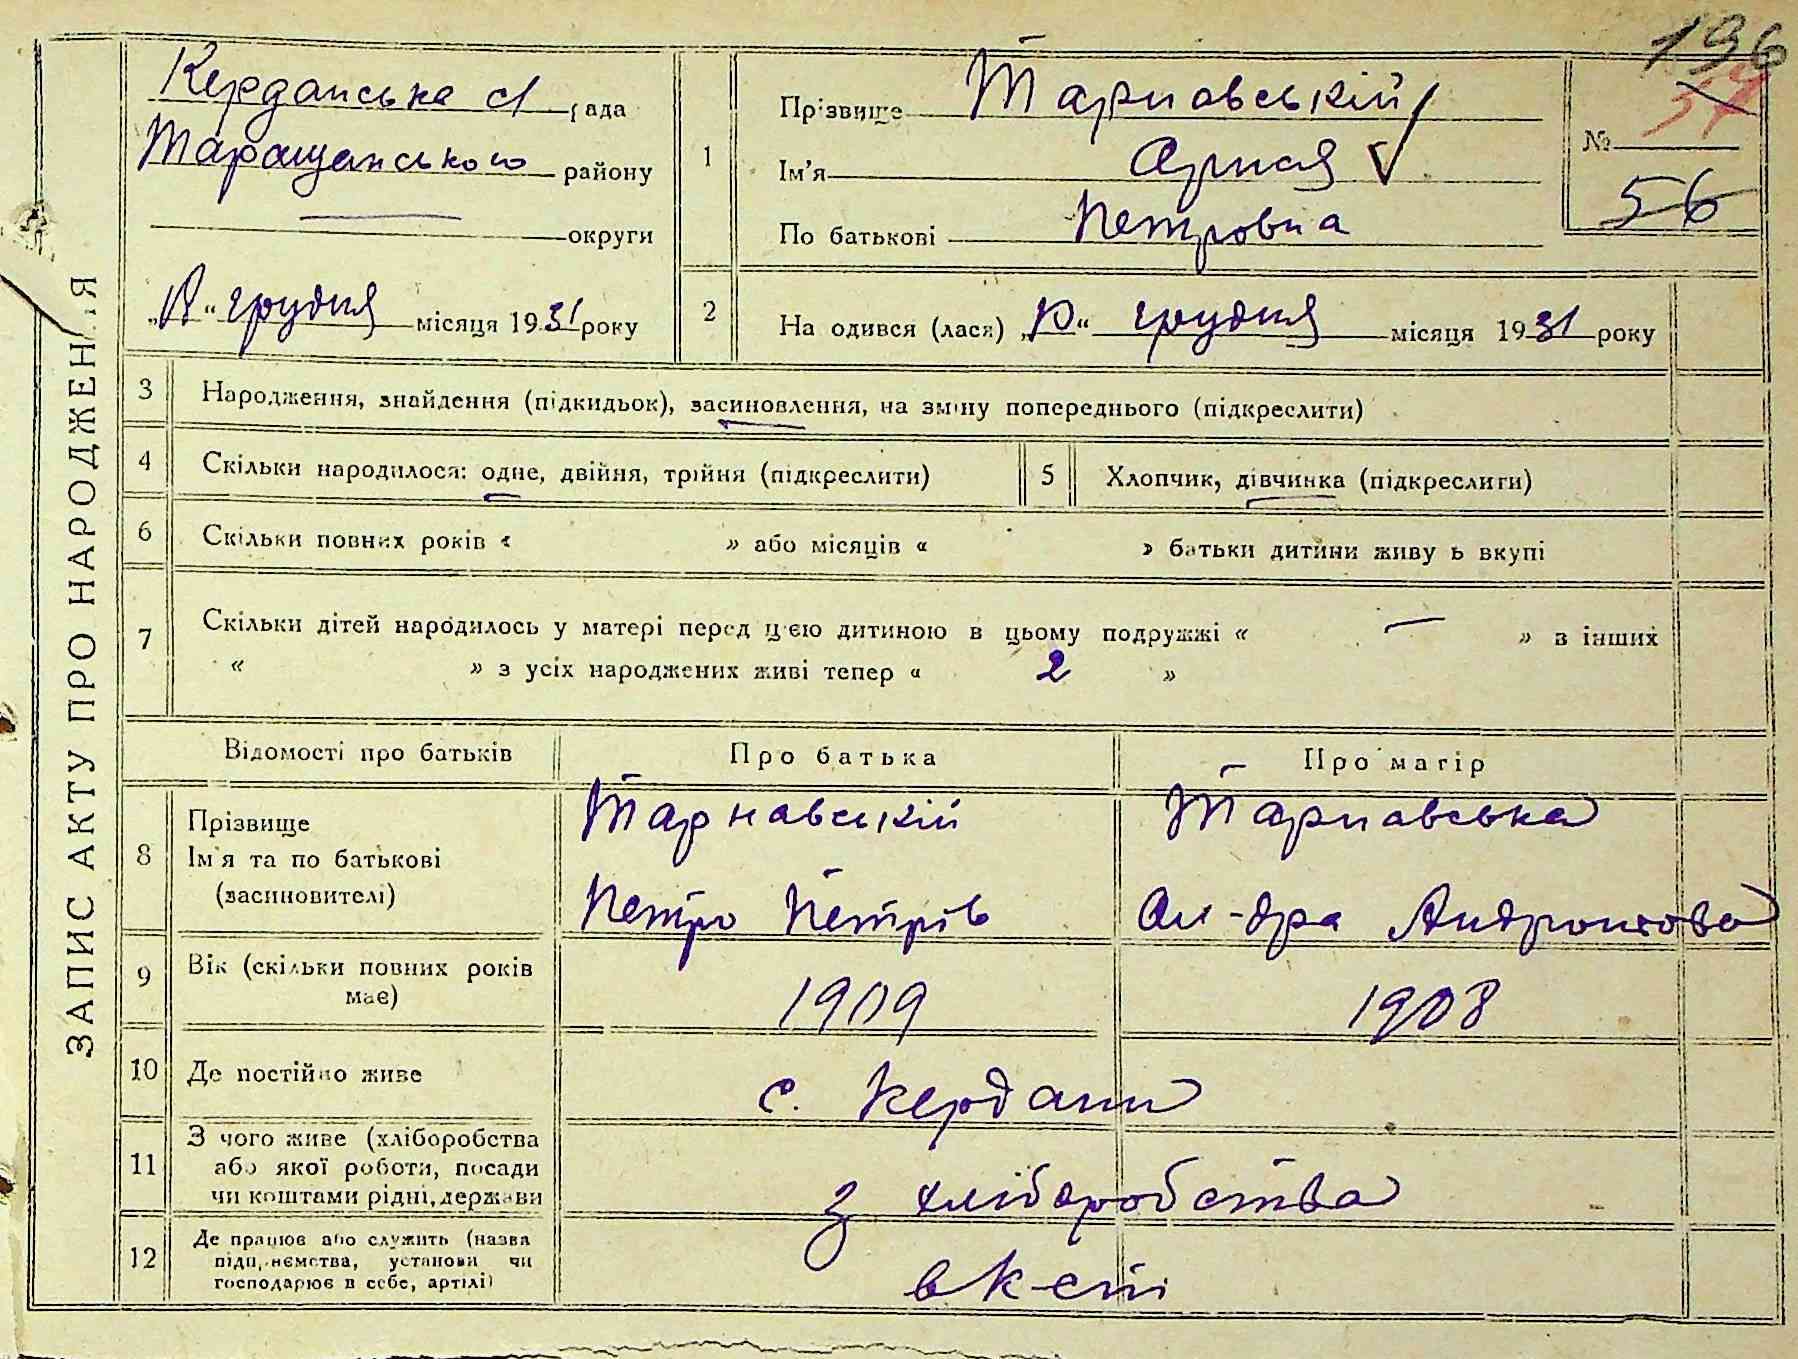 196
ЗАПИС АКТУ ПРО НАРОДЖЕННЯ
Керданська с/ рада
Таращанського району
округи
грудня місяця 1931 року
1
Прізвище Тарнавський
Ім'я
По батькові Петровна
№
57
56
2
На одився (лася) грудня місяця 1931 року
3
Народження, знайдення (підкидьок), засиновлення, на зміну попереднього (підкреслити)
4
Скільки народилося: одне, двійня, трійня (підкреслити)
5
Хлопчик, дівчинка (підкреслити)
6
Скільки повних років « » або місяців « » батьки дитини живу ь вкупі
7
Скільки дітей народилось у матері перед цією дитиною в цьому подружжі « — » в інших
« » з усіх народжених живі тепер « 2 »
Відомості про батьків
Про батька
Про матір
8
Прізвище
Ім'я та по батькові
(засиновителі)
Тарнавський
Петро Петрів
Тарнавська
Ол-дра
9
Вік (скільки повних років
має)
1909
1908
10
Де постійно живе
с. Кердани
11
З чого живе (хліборобства
або якої роботи, посади
чи коштами рідні, держави
з хліборобства
12
Де працює або служить (назва
підприємства, установи чи
господарює в себе, артілі)